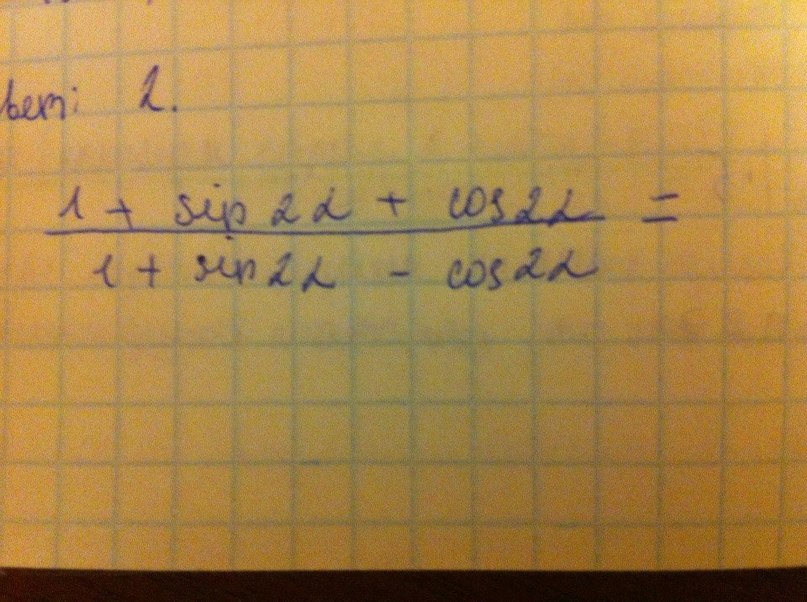 вет: 2.
1 + sin 2α + cos 2α =
1 + sin 2α - cos 2α